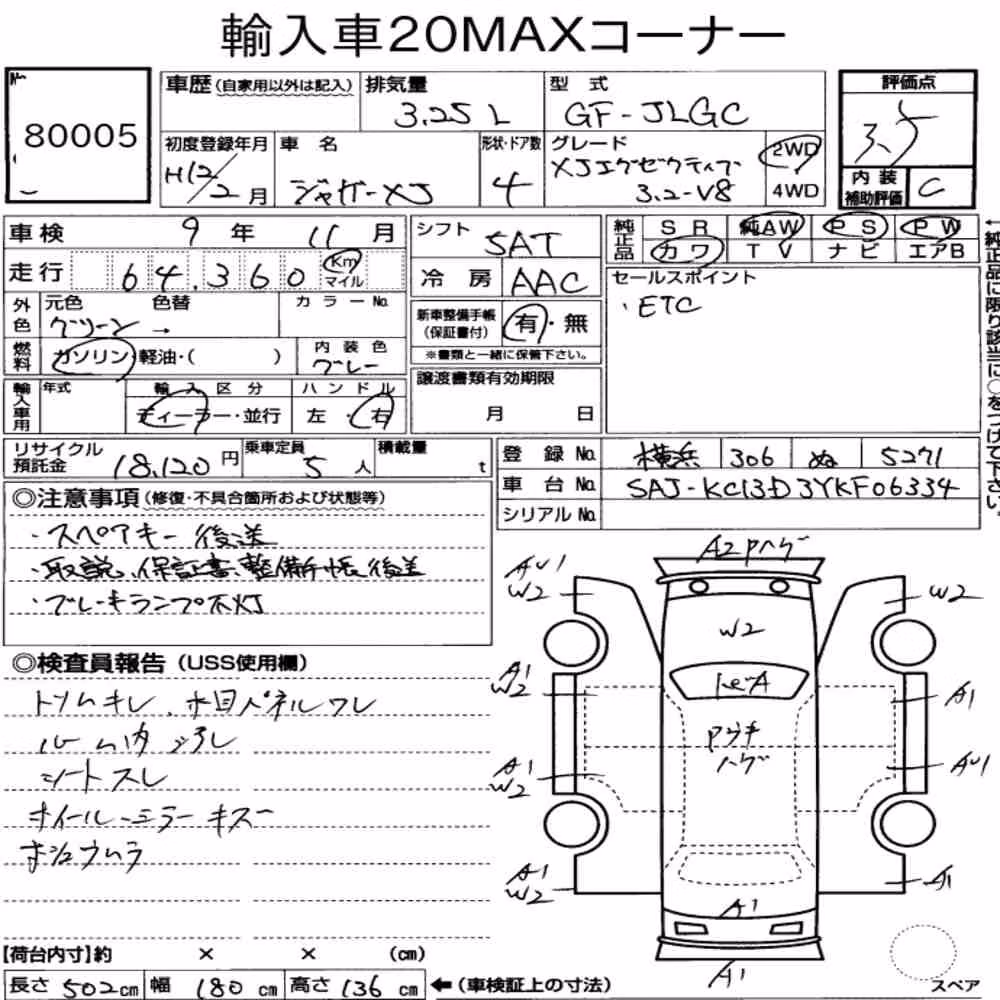 輸入車20MAXコーナー
80005
車歴 (自家用以外は記入) 排気量 3.25 L 型式 GF-JLGC 評価点 3.5
初度登録年月 H12/2月 車名 ジャガーXJ 形状・ドア数 4 グレード XJエグゼクティブ 3.2-V8 2WD 4WD
内装補助評価 C
車検 9年 11月 シフト 5AT 純正品 SR 純AW PS PW
カワ TV ナビ エアB
走行 64,360 Km マイル 冷房 AAC
セールスポイント
・ETC
外色 元色 グリーン → 色替 カラーNo.
新車整備手帳 (保証書付) 有・無
※書類と一緒に保管下さい。
燃料 ガソリン・軽油・( ) 内装色 グレー
輸入車用 年式 輸入区分 ディーラー・並行 ハンドル 左・右
譲渡書類有効期限
月 日
←純正品に限り該当に○をつけて下さい。
リサイクル預託金 18,120円 乗車定員 5人 積載量 t
登録No. 横浜 306 ぬ 5271
車台No. SAJ-KC13D3YKF06334
シリアルNo.
◎注意事項 (修復・不具合箇所および状態等)
・スペアキー後送
・取説、保証書、整備手帳後送
・ブレーキランプ不灯
◎検査員報告 (USS使用欄)
トリムキレ、木目パネルワレ
ルーム内ヨゴレ
シートスレ
ホイール・ミラーキズ
A2Pハゲ
AU1
W2
W2
W2
A1
W2
A1
Pウキ
ハゲ
A1
W2
AU1
A1
W2
A1
A1
A1
【荷台内寸】約 × × (cm)
長さ 502cm 幅 180cm 高さ 136cm ←(車検証上の寸法)
スペア